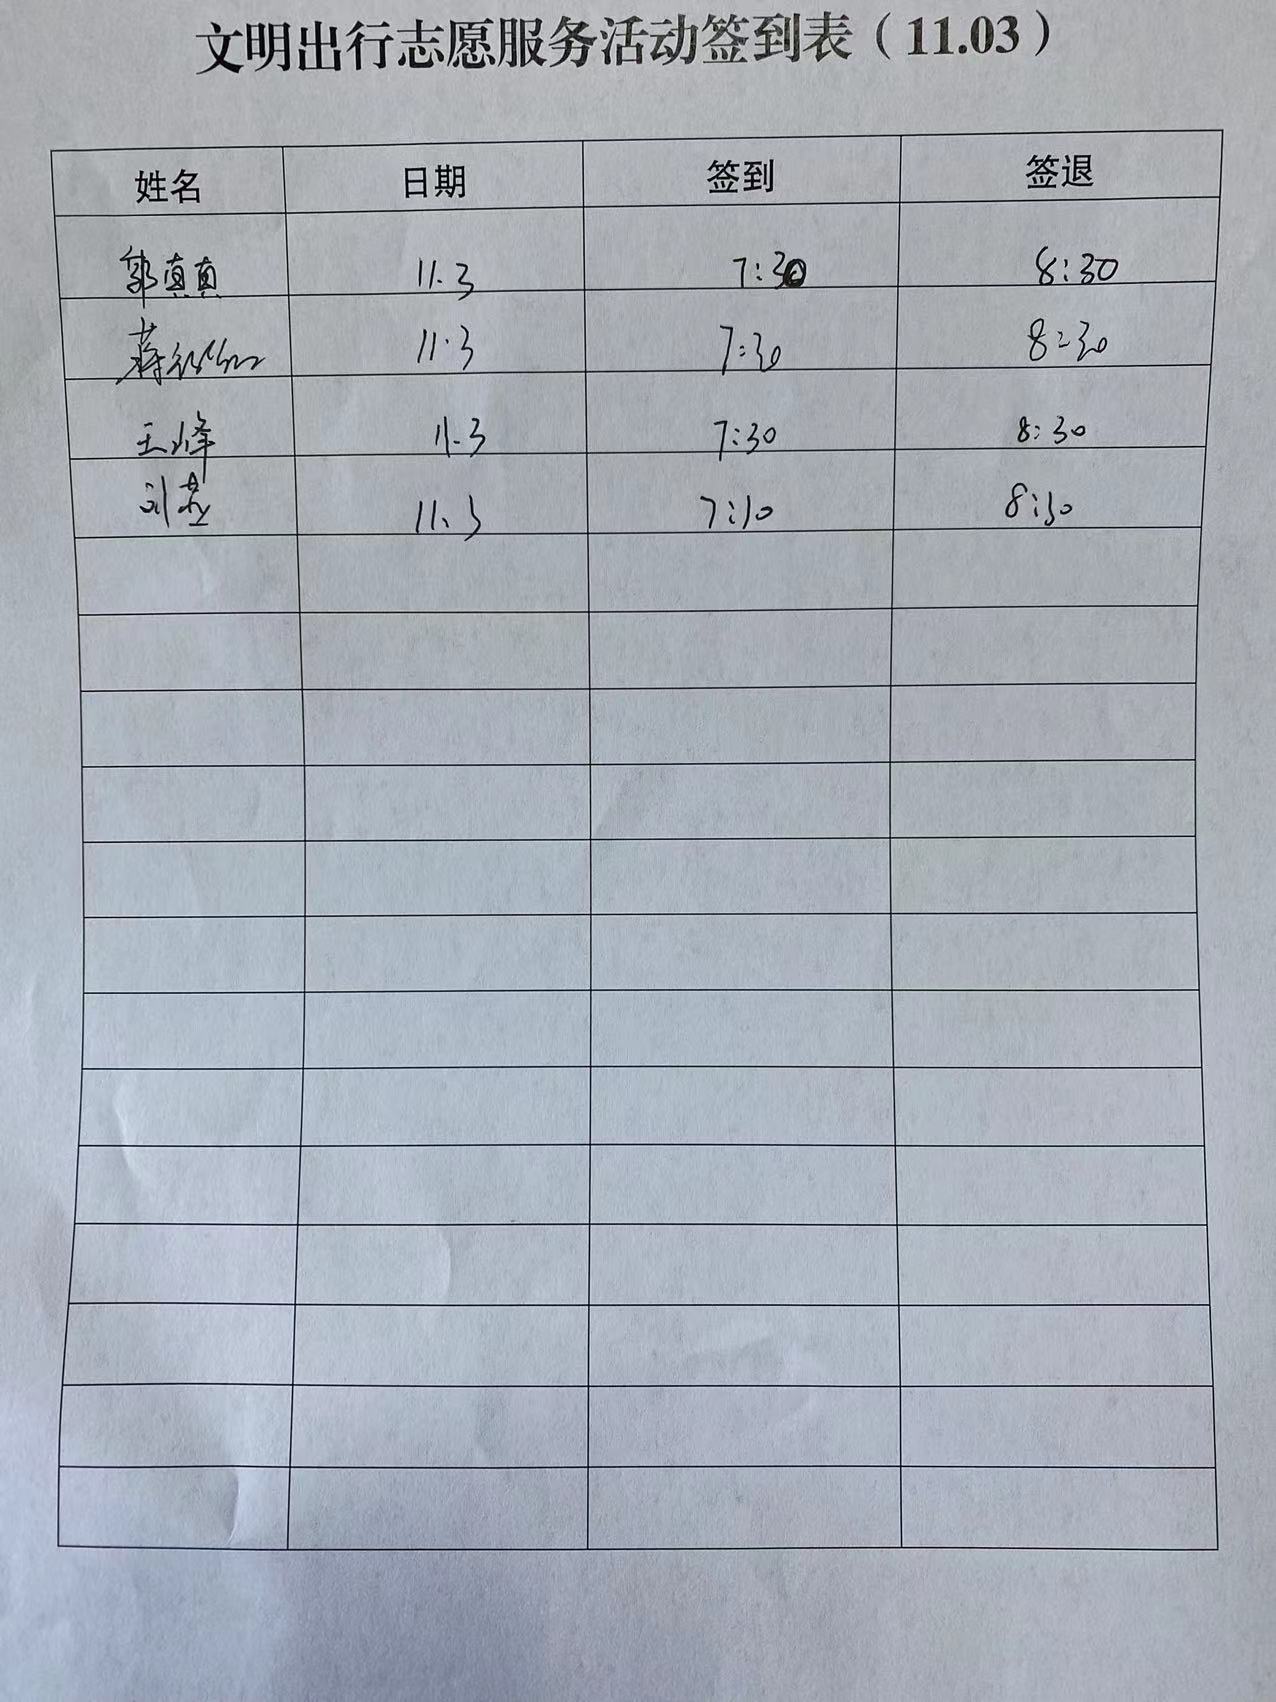 文明出行志愿服务活动签到表（11.03）
姓名 日期 签到 签退
郭真真 11.3 7:30 8:30
蒋 11.3 7:30 8:30
王峰 11.3 7:30 8:30
刘 11.3 7:30 8:30